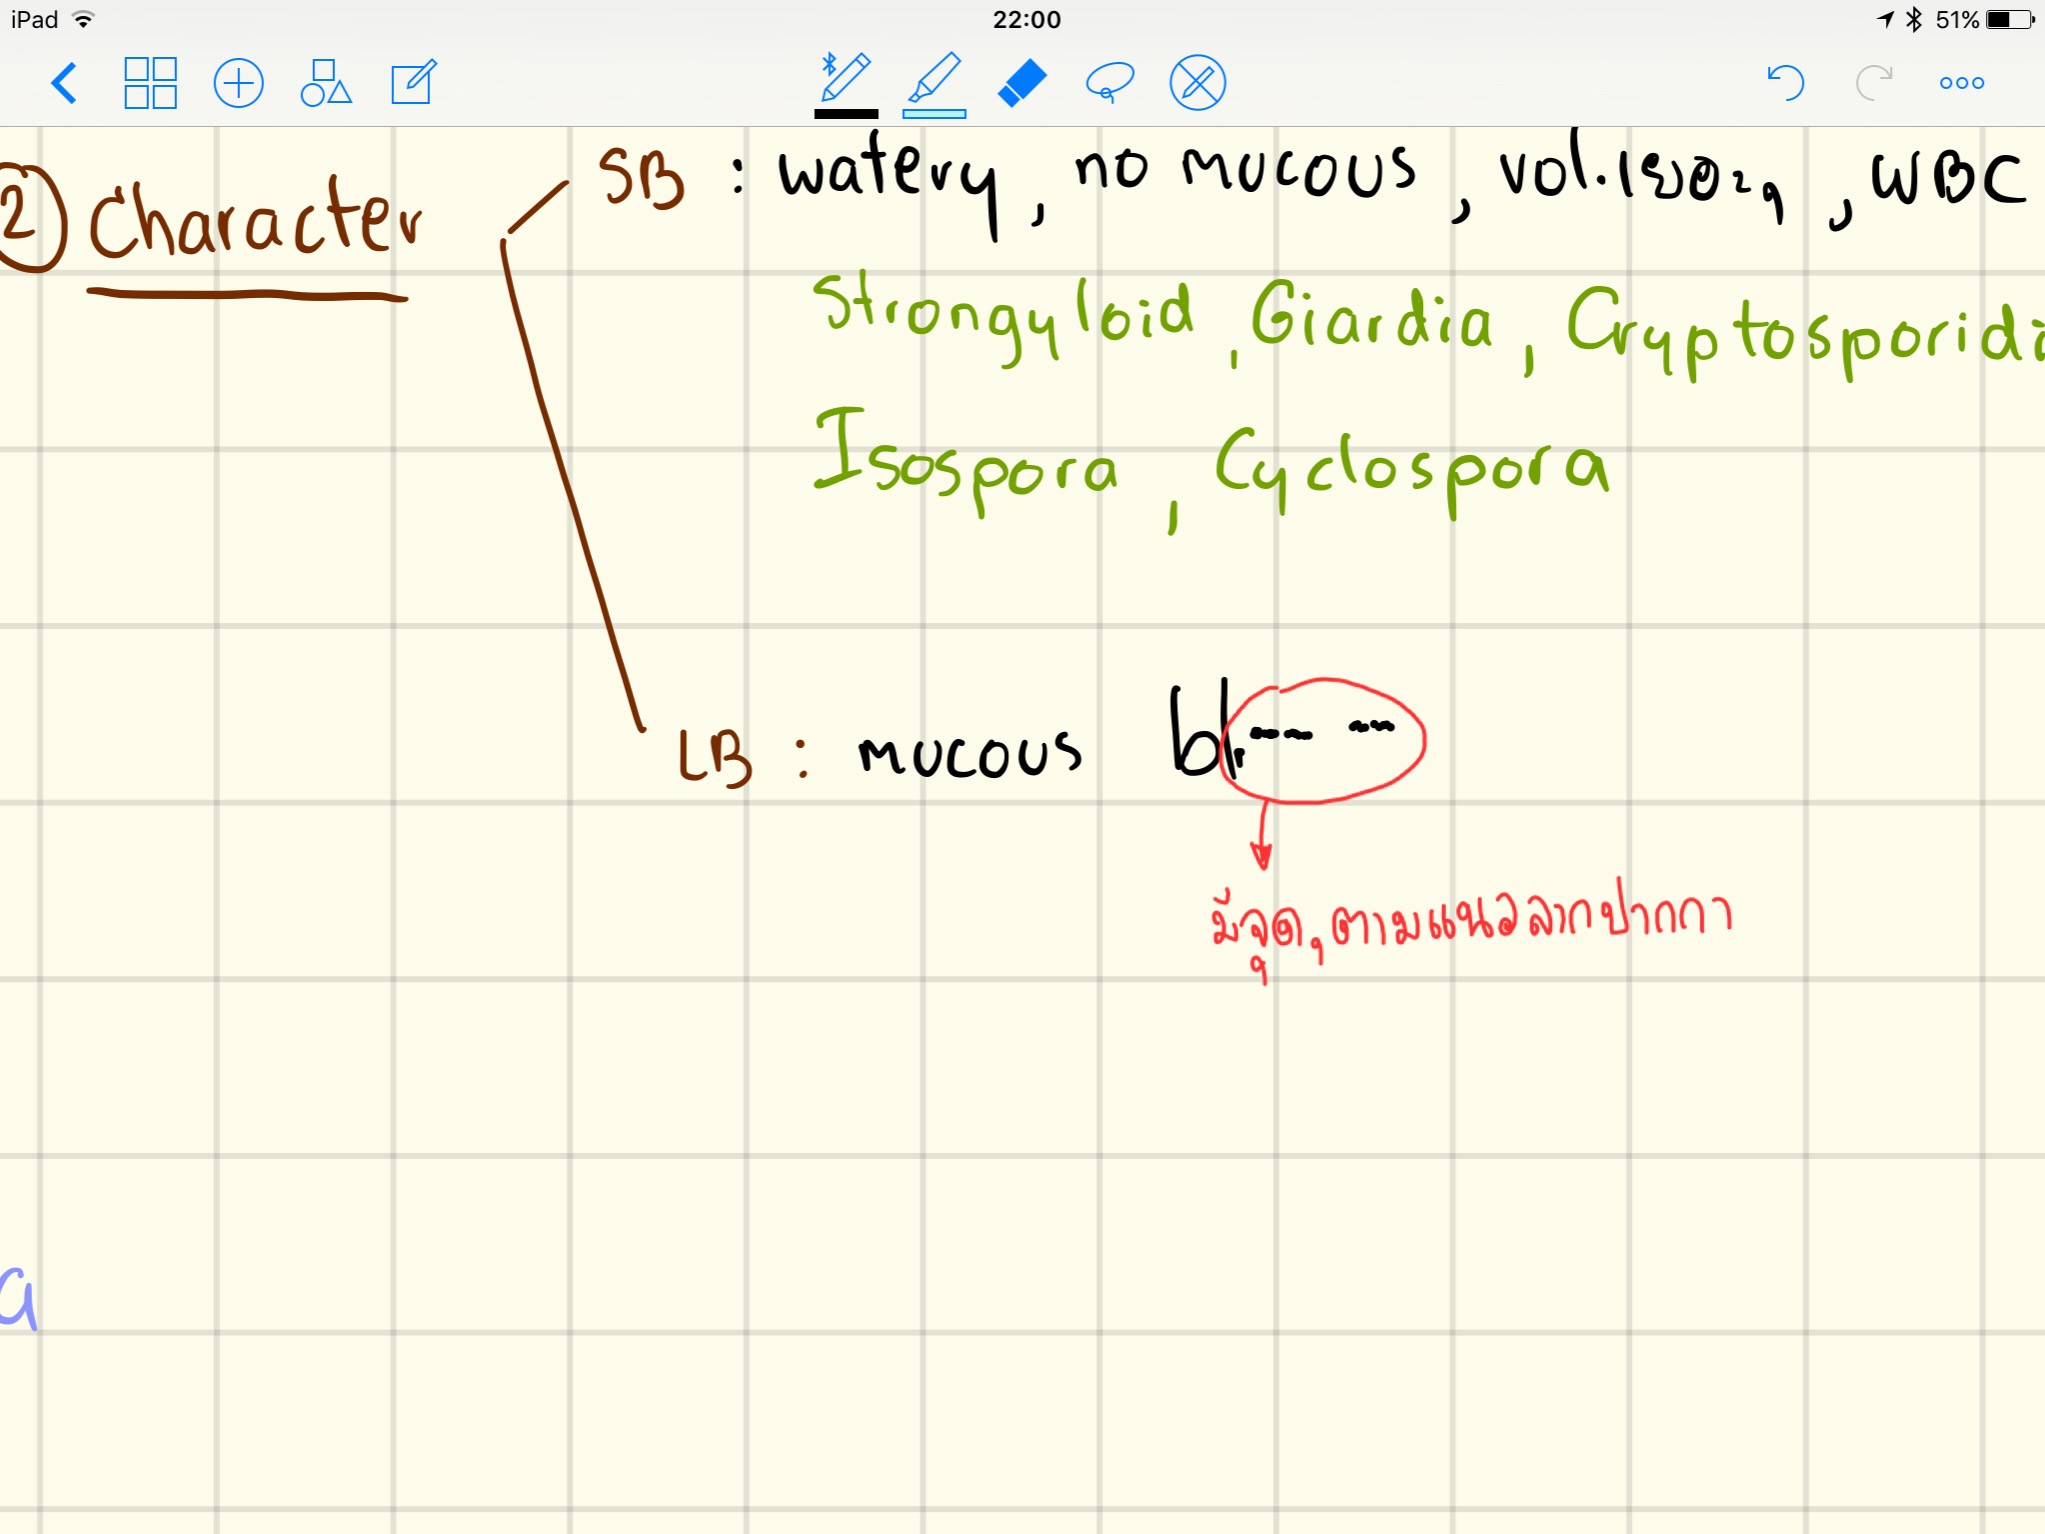 iPad 22:00 51%
② Character
SB : watery, no mucous, vol.เยอะๆ, WBC
Strongyloid, Giardia, Cryptosporidi
Isospora, Cyclospora
LB : mucous bl
มีจุดๆตามแนวลากปากกา
a